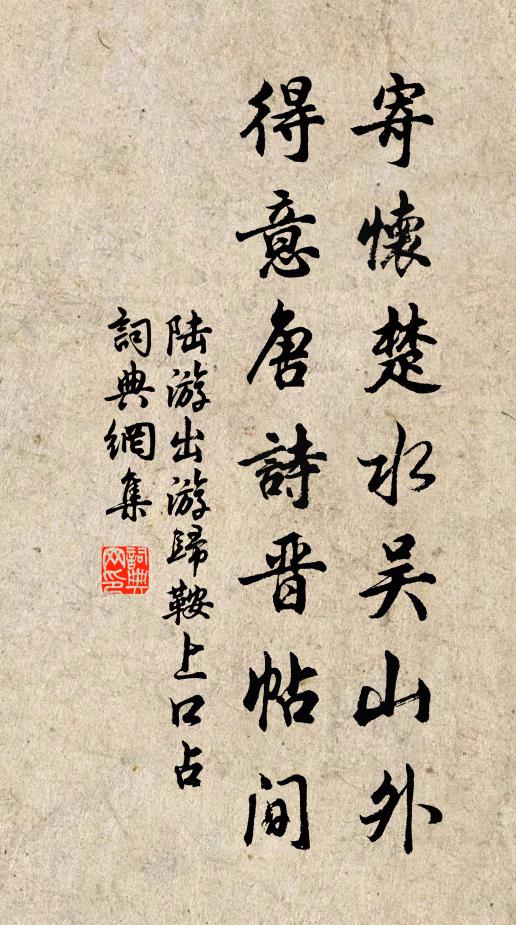 寄懷楚水吴山外
得意唐詩晋帖间
陆游出游歸鞍上口占
詞典網集
詞典网印